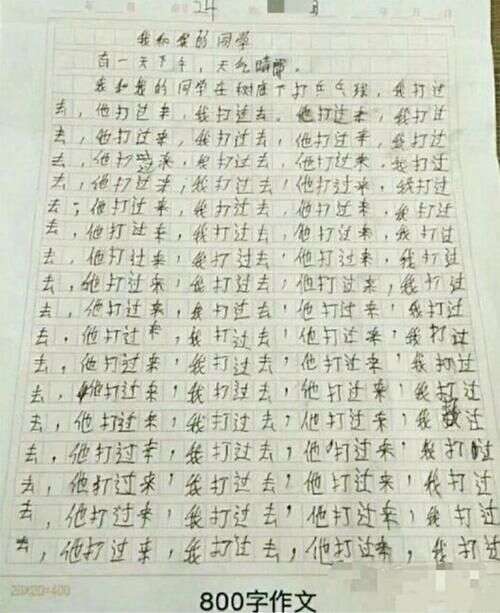 24
我和我的同学
有一天下午，天气晴朗。
我和我的同学在树底下打乒乓球，我打过
去，他打过来，我打过去，他打过来，我打过
去，他打过来，我打过去，他打过来，我打过
去，他打过来，我打过去，他打过来，我打过
去，他打过来，我打过去，他打过来，我打过
去，他打过来，我打过去，他打过来，我打过
去，他打过来，我打过去，他打过来，我打过
去，他打过来，我打过去，他打过来，我打过
去，他打过来，我打过去，他打过来，我打过
去，他打过来，我打过去，他打过来，我打过
去，他打过来，我打过去，他打过来，我打过
去，他打过来，我打过去，他打过来，我打过
去，他打过来，我打过去，他打过来，我打过
去，他打过来，我打过去，他打过来，我打
去，他打过来，我打过去，他打过来，我打过
去，他打过来，我打过去，他打过来，我打过
去，他打过来，我打过去，他打过来，我打过
去，他打过来，我打过去，他打过来，我打过
20X20=400
800字作文